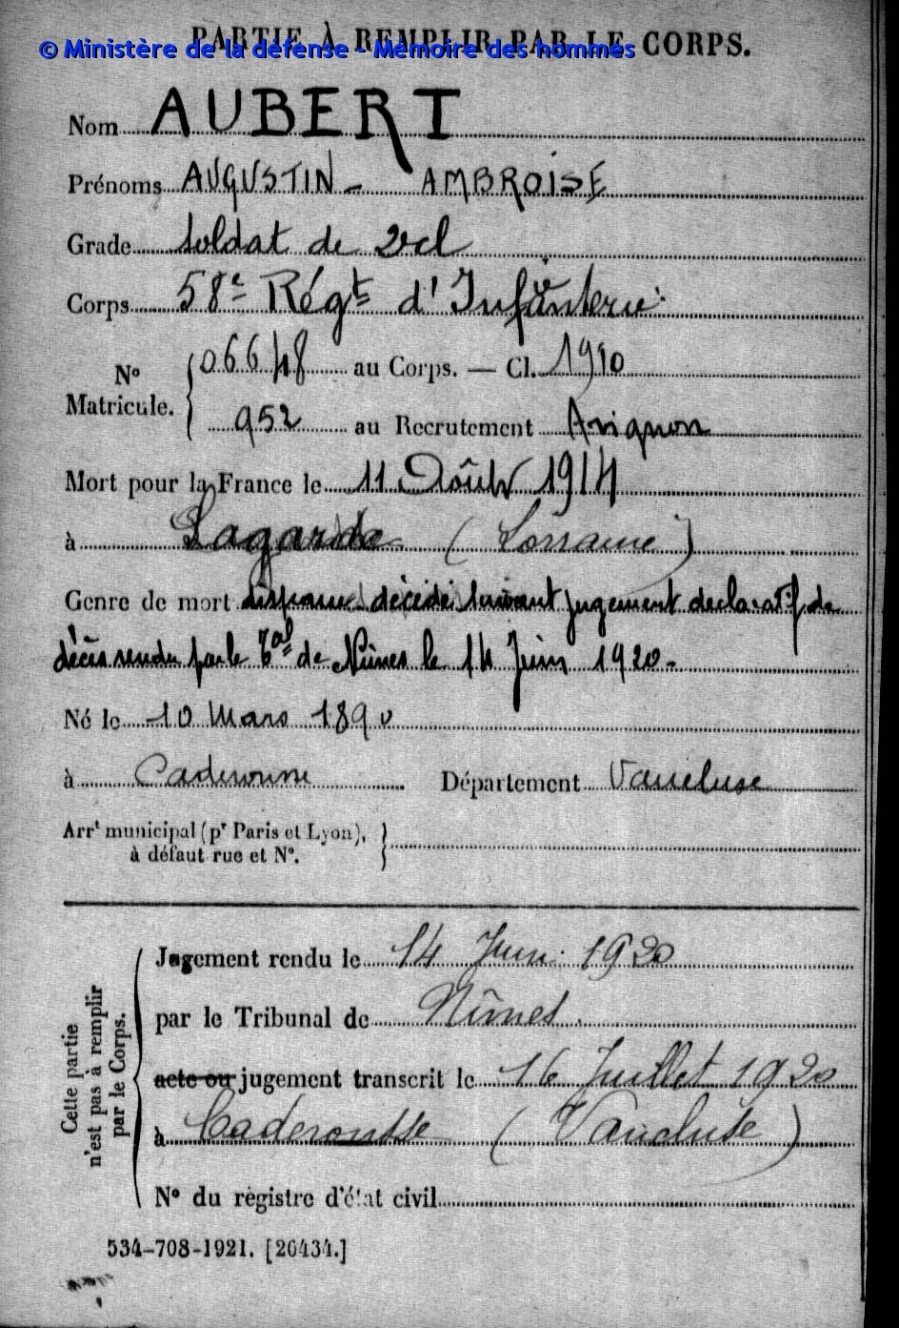 PARTIE À REMPLIR PAR LE CORPS.
© Ministère de la défense - Mémoire des hommes
Nom AUBERT
Prénoms AUGUSTIN - AMBROISE
Grade Soldat de 2e cl
Corps 58e Régt d'Infanterie
No Matricule. { 06648 au Corps. — Cl. 1910
952 au Recrutement Avignon
Mort pour la France le 11 Août 1914
à Lagarde (Lorraine)
Genre de mort disparu décédé suivant jugement déclaratif de
décès rendu par le Tal de Nîmes le 14 Juin 1920.
Né le 10 Mars 1890
à Caderousse Département Vaucluse
Arrt municipal (pr Paris et Lyon), }
à défaut rue et No.
Cette partie n'est pas à remplir par le Corps.
Jugement rendu le 14 Juin 1920
par le Tribunal de Nîmes.
acte ou jugement transcrit le 16 Juillet 1920
à Caderousse (Vaucluse)
No du registre d'état civil
534-708-1921. [26434.]